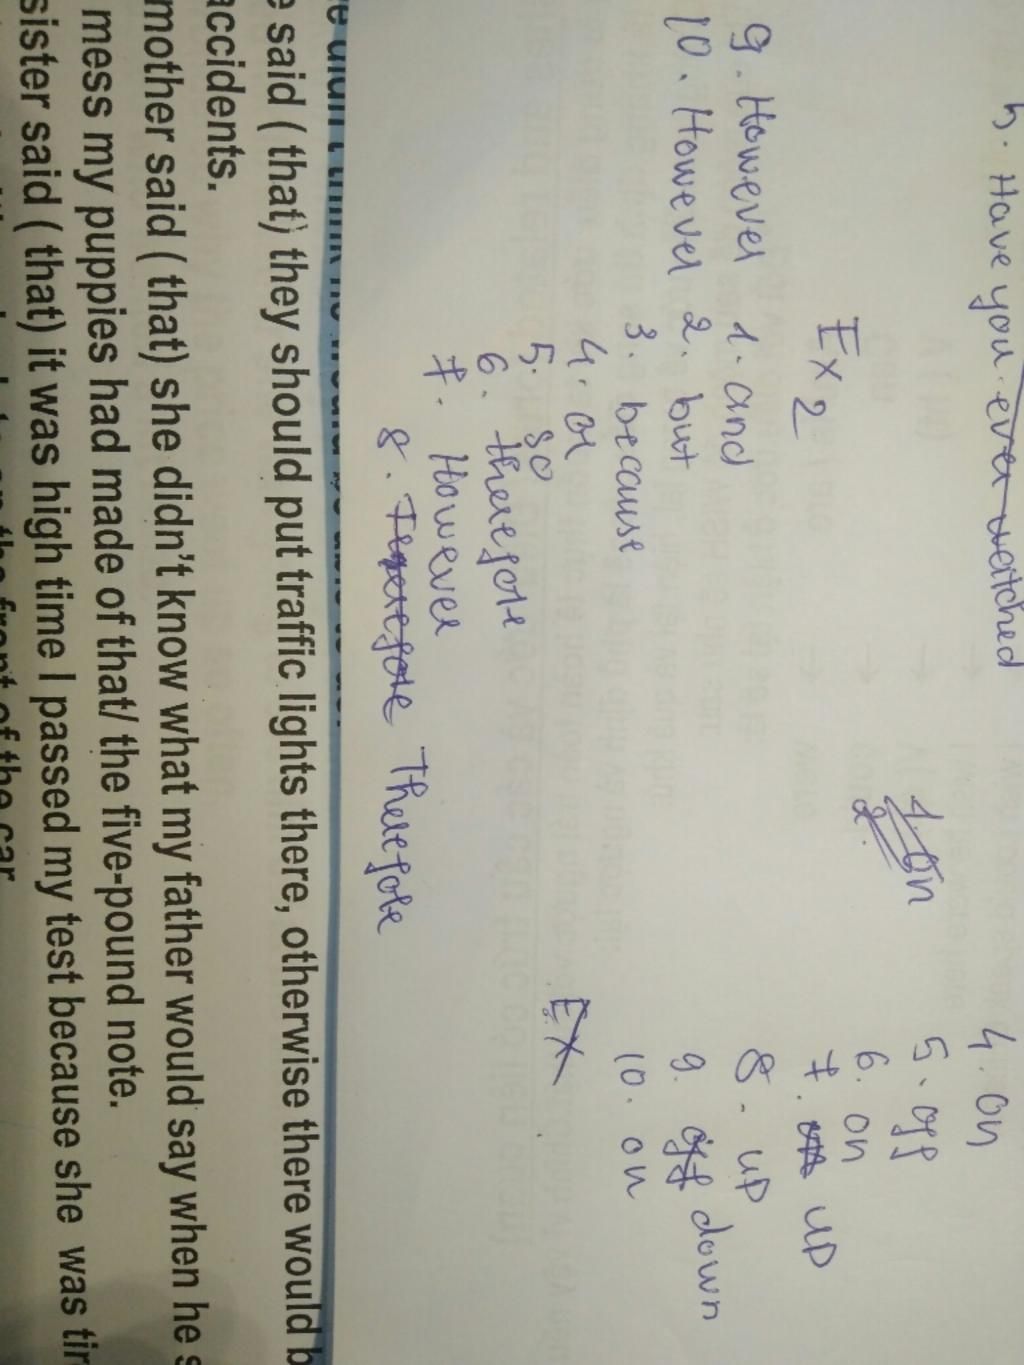 5. Have you ever watched
1. On
2.
4. On
5. off
6. on
7. up
8. up
9. off down
10. on
Ex
Ex 2
9. However
10. However
1. and
2. but
3. because
4. or
5. so
6. therefore
7. However
8. Therefore Therefore
e said ( that) they should put traffic lights there, otherwise there would b
accidents.
mother said ( that) she didn't know what my father would say when he s
mess my puppies had made of that/ the five-pound note.
sister said ( that) it was high time I passed my test because she was tir
the front of the car